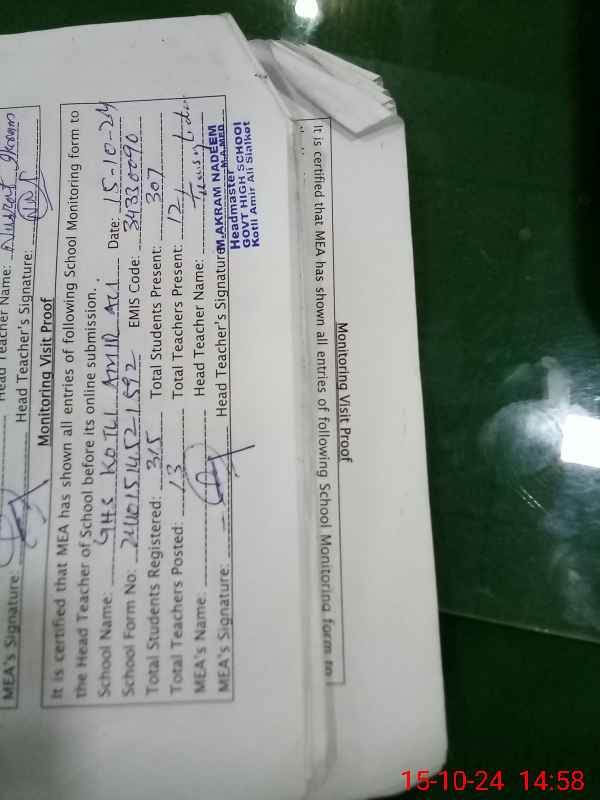 Head Teacher Name: Nusrat Ikram
MEA's Signature: Head Teacher's Signature:
Monitoring Visit Proof
It is certified that MEA has shown all entries of following School Monitoring form to
the Head Teacher of School before its online submission.
School Name: GHS KOTLI AMIR ALI. Date: 15-10-24
School Form No: EMIS Code: 34330090
Total Students Registered: 315 Total Students Present: 307
Total Teachers Posted: 13 Total Teachers Present: 12
MEA's Name: Head Teacher Name:
MEA's Signature: Head Teacher's Signature:
M.AKRAM NADEEM
M.A,MED
Headmaster
GOVT HIGH SCHOOL
Kotli Amir Ali Sialkot
Monitoring Visit Proof
It is certified that MEA has shown all entries of following School Monitoring form to
15-10-24 14:58